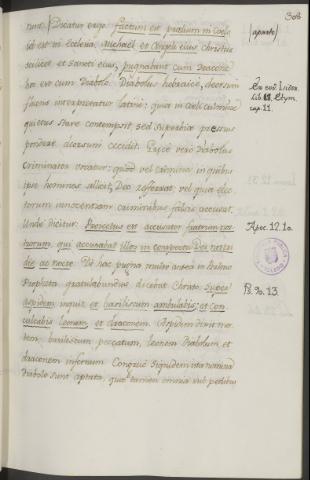 308
nunt. Dicatur ergo. Factum est prælium in Coelo
id est in Ecclesia, Michael et Angeli ejus, Christus
scilicet et Sancti ejus, pugnabant cum Dracone
hoc est cum Diabolo. Diabolus hebraicè, deorsum
fluens interpretatur latinè: quia in coeli culmine
quietus stare contempsit, sed superbiæ pressus
pondere deorsum cecidit. Græcè verò Diabolus
Criminator vocatur: quod vel crimina in quibus
ipse homines allicit, Deo referat, vel quia elec-
torum innocentiam criminibus falsis accusat.
Unde dicitur: Proiectus est accusator fratrum nos-
trorum, qui accusabat illos in conspectu Dei nostri
die ac nocte. De hac pugna
Propheta gratulabundus dicebat Christo Super
aspidem inquit et basiliscum ambulabis, et con-
culcabis leonem et draconem. Aspidem dixit mor-
tem, basiliscum peccatum, leonem Diabolum et
draconem infernum. Congruè siquidem ista nomina
Diabolo sunt aptata, quia tamen omnia sub pedibus
(aparte)
lib. Etym.
cap. 11.
Apoc. 12. 10.
Ps. 90. 13.